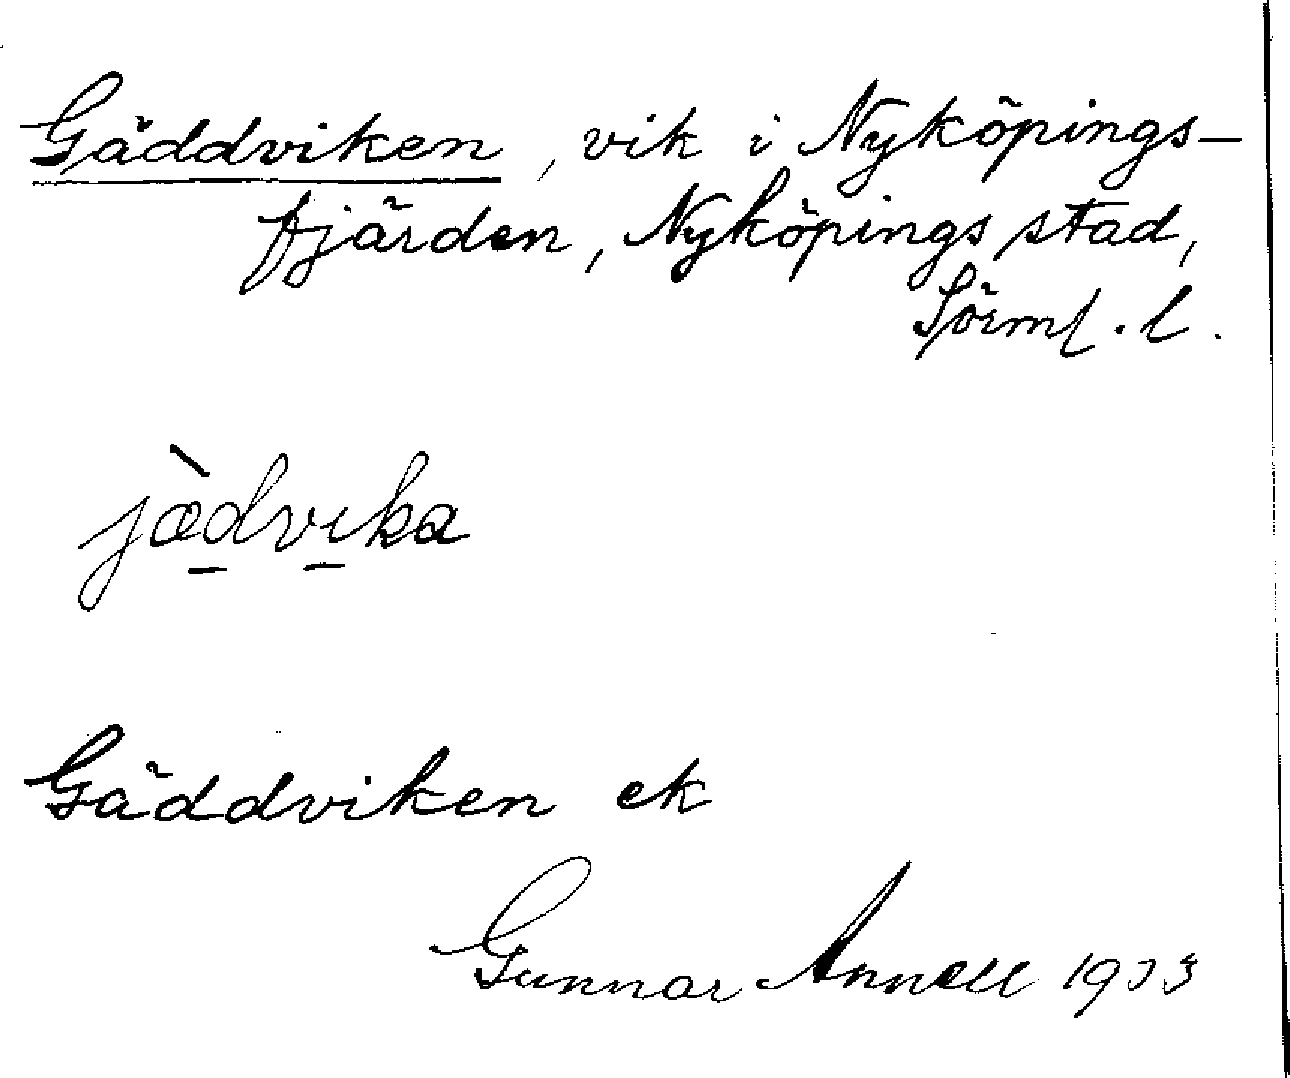 Gäddviken, vik i Nyköpings-
fjärden, Nyköpings stad,
Sörml. l.
jæ̀dvika
Gäddviken ek
Gunnar Annell 1933